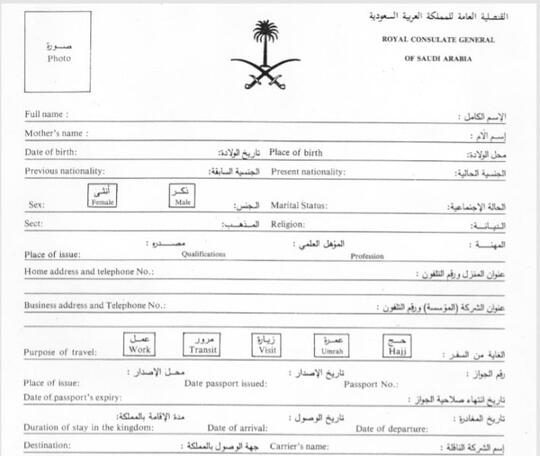 القنصلية العامة للمملكة العربية السعودية
ROYAL CONSULATE GENERAL
OF SAUDI ARABIA
صورة
Photo
Full name : الإسم الكامل :
Mother's name : إسم الأم :
Date of birth: تاريخ الولادة: Place of birth محل الولادة:
Previous nationality: الجنسية السابقة: Present nationality: الجنسية الحالية:
أنثى ذكر
Sex: Female Male الجنس: Marital Status: الحالة الإجتماعية:
Sect: المذهب: Religion: الديانة:
مصدره : المؤهل العلمي : المهنة :
Place of issue: Qualifications Profession
Home address and telephone No.: عنوان المنزل ورقم التلفون :
Business address and Telephone No.: عنوان الشركة (المؤسسة) ورقم التلفون :
عمل مرور زيارة عمرة حج
Purpose of travel: Work Transit Visit Umrah Hajj الغاية من السفر :
محل الإصدار: تاريخ الإصدار: رقم الجواز:
Place of issue: Date passport issued: Passport No.:
Date of passport's expiry: تاريخ انتهاء صلاحية الجواز :
مدة الإقامة بالمملكة: تاريخ الوصول : تاريخ المغادرة :
Duration of stay in the kingdom: Date of arrival: Date of departure:
Destination: جهة الوصول بالمملكة: Carrier's name: إسم الشركة الناقلة :